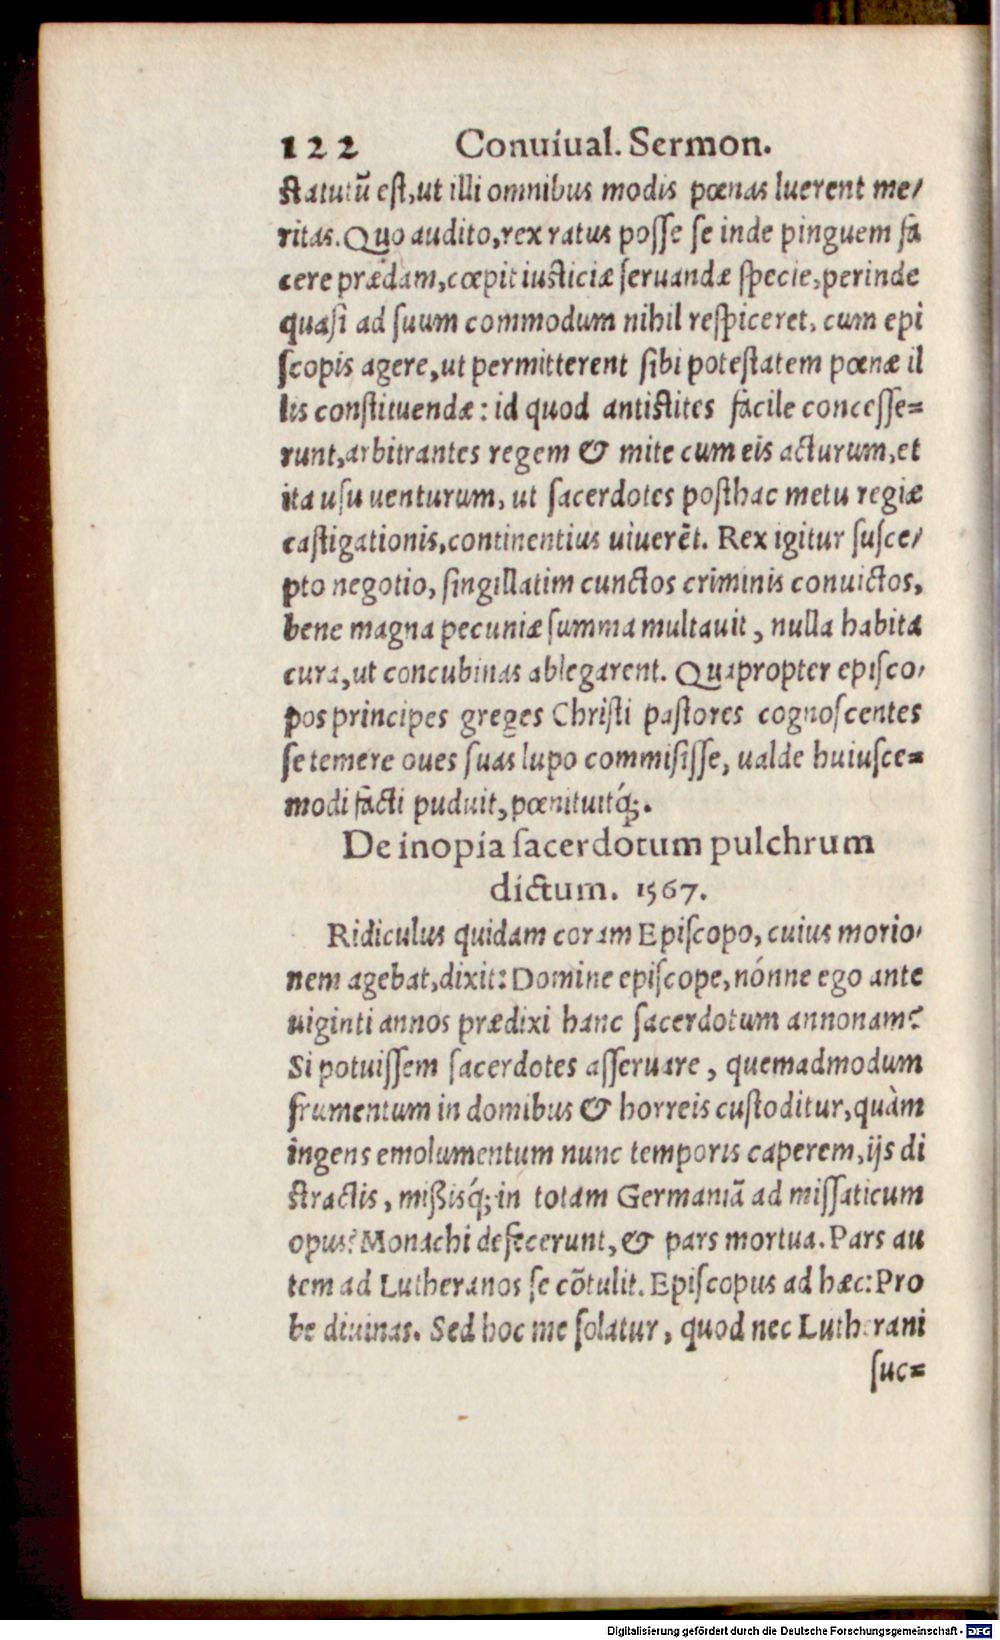 122 Conuiual. Sermon.
statutū est, ut illi omnibus modis pœnas luerent me/
ritas. Quo audito, rex ratus posse se inde pinguem fa
cere prædam, cœpit iusticiæ seruandæ specie, perinde
quasi ad suum commodum nihil respiceret, cum epi
scopis agere, ut permitterent sibi potestatem pœnæ il
lis constituendæ: id quod antistites facile concesse=
runt, arbitrantes regem & mite cum eis acturum, et
ita usu uenturum, ut sacerdotes posthac metu regiæ
castigationis, continentius uiuerēt. Rex igitur susce/
pto negotio, singillatim cunctos criminis conuictos,
bene magna pecuniæ summa multauit, nulla habita
cura, ut concubinas ablegarent. Quapropter episco/
pos principes greges Christi pastores cognoscentes
se temere oues suas lupo commisisse, ualde huiusce=
modi facti puduit, pœnituitq́;.
De inopia sacerdotum pulchrum
dictum. 1567.
Ridiculus quidam coram Episcopo, cuius morio/
nem agebat, dixit: Domine episcope, nónne ego ante
uiginti annos prædixi hanc sacerdotum annonam?
Si potuissem sacerdotes asseruare, quemadmodum
frumentum in domibus & horreis custoditur, quàm
ingens emolumentum nunc temporis caperem, ijs di
stractis, mißisq́; in totam Germaniā ad missaticum
opus? Monachi defecerunt, & pars mortua. Pars au
tem ad Lutheranos se cōtulit. Episcopus ad hæc: Pro
be diuinas. Sed hoc me solatur, quod nec Lutherani
suc=
Digitalisierung gefördert durch die Deutsche Forschungsgemeinschaft - DFG